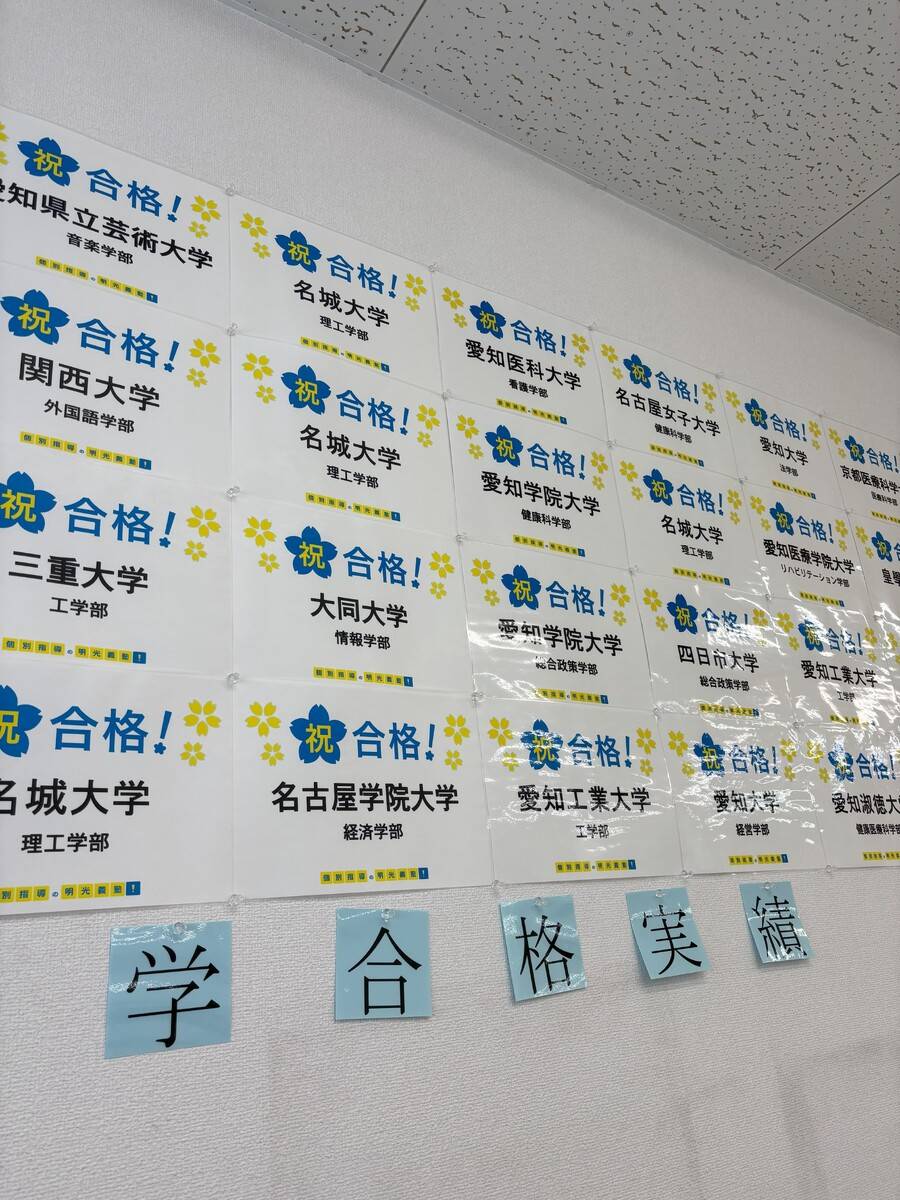 祝 合格!
愛知県立芸術大学
音楽学部
個別指導の明光義塾!
祝 合格!
名城大学
理工学部
個別指導の明光義塾!
祝 合格!
愛知医科大学
看護学部
個別指導の明光義塾!
祝 合格!
名古屋女子大学
健康科学部
個別指導の明光義塾!
祝 合格!
愛知大学
法学部
個別指導の明光義塾!
祝 合格!
京都医療科学
医療科学部
祝 合格!
関西大学
外国語学部
個別指導の明光義塾!
祝 合格!
名城大学
理工学部
個別指導の明光義塾!
祝 合格!
愛知学院大学
健康科学部
個別指導の明光義塾!
祝 合格!
名城大学
理工学部
個別指導の明光義塾!
祝 合格!
愛知医療学院大学
リハビリテーション学部
個別指導の明光義塾!
祝
皇學
祝 合格!
三重大学
工学部
個別指導の明光義塾!
祝 合格!
大同大学
情報学部
個別指導の明光義塾!
祝 合格!
愛知学院大学
総合政策学部
個別指導の明光義塾!
祝 合格!
四日市大学
総合政策学部
個別指導の明光義塾!
祝 合格!
愛知工業大学
工学部
個別指導の明光義塾!
祝 合格!
名城大学
理工学部
別指導の明光義塾!
祝 合格!
名古屋学院大学
経済学部
個別指導の明光義塾!
祝 合格!
愛知工業大学
工学部
個別指導の明光義塾!
祝 合格!
愛知大学
経営学部
個別指導の明光義塾!
祝 合格!
愛知淑徳大
健康医療科学部
個別指導の明光義塾
学合格実績